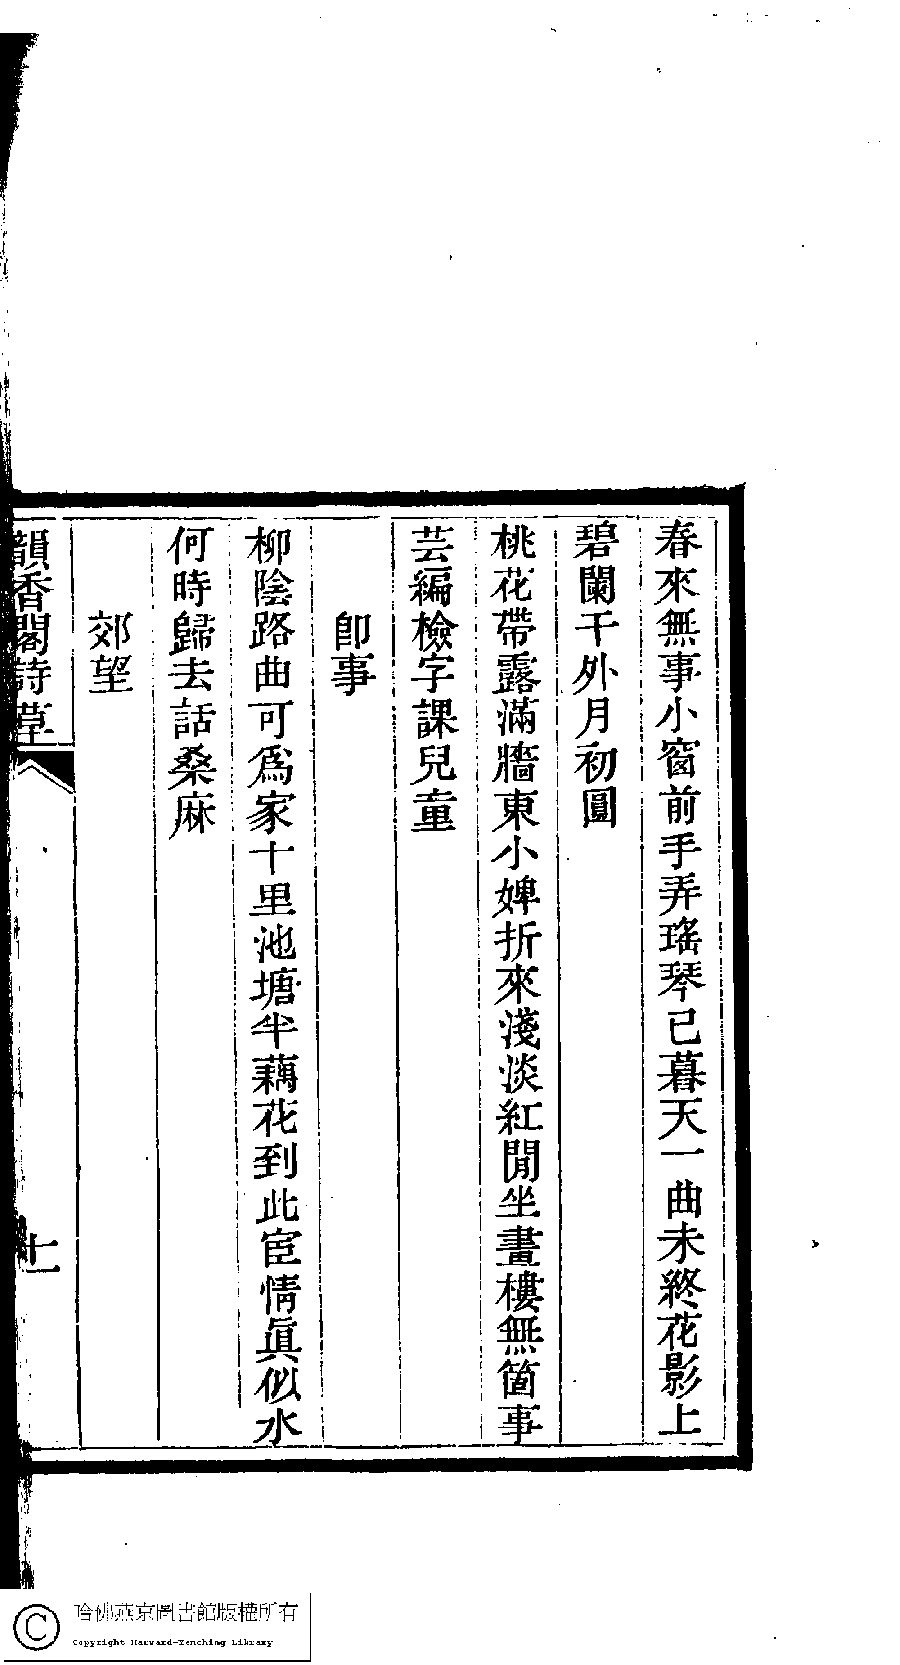 春來無事小窗前手弄瑤琴已暮天一曲未終花影上
碧闌干外月初圓
桃花帶露滿牆東小婢折來淺淡紅閒坐畫樓無箇事
芸編檢字課兒童
卽事
柳陰路曲可爲家十里池塘半藕花到此宦情眞似水
何時歸去話桑麻
郊望
韻香閣詩草
七
哈佛燕京圖書館版權所有
Copyright Harvard-Yenching Library